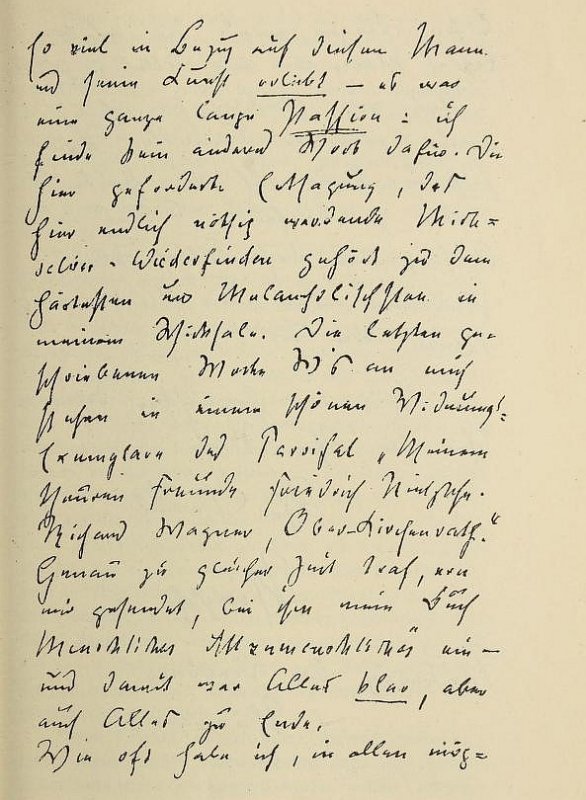 so viel in Bezug auf diesen Mann
und seine Kunst erlebt — es war
eine ganze lange Passion: ich
finde kein anderes Wort dafür. Die
hier geforderte Entsagung, das
hier endlich nöthig werdende Mich=
selber-Wiederfinden gehört zu dem
Härtesten und Melancholischsten in
meinem Schicksale. Die letzten ge-
schriebenen Worte W's an mich
stehen in einem schönen Widmungs=
Exemplare des Parsifal „Meinem
theuren Freunde Friedrich Nietzsche.
Richard Wagner, Ober-Kirchenrath."
Genau zu gleicher Zeit traf, von
mir gesendet, bei ihm mein Buch
Menschliches Allzumenschliches ein —
und damit war Alles klar, aber
auch Alles zu Ende.
Wie oft habe ich, in allen mög=